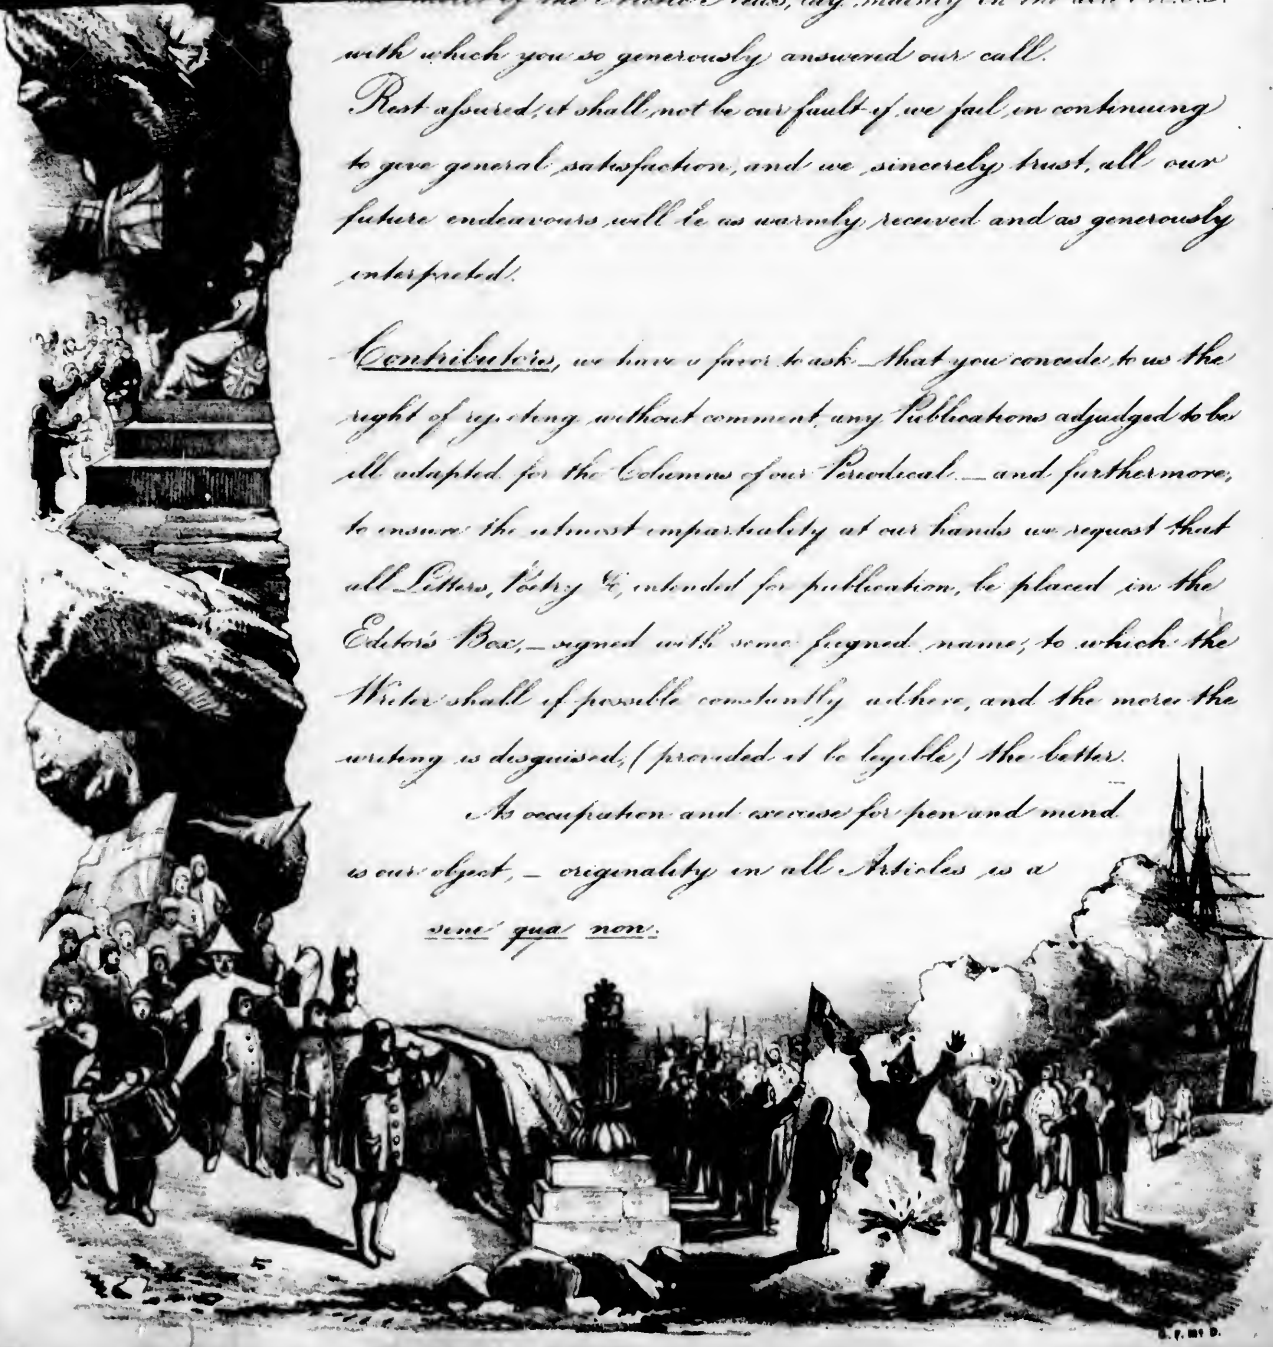 of the
with which you so generously answered our call.
Rest assured, it shall not be our fault if we fail in continuing
to give general satisfaction, and we sincerely trust, all our
future endeavours will be as warmly received and as generously
interpreted.
Contributors, we have a favor to ask – that you concede to us the
right of rejecting without comment, any Publications adjudged to be
ill adapted for the Columns of our Periodical – and furthermore,
to ensure the utmost impartiality at our hands we request that
all Letters, Poetry &c, intended for publication, be placed in the
Editor's Box, – signed with some feigned name; to which the
Writer shall if possible constantly adhere, and the more the
writing is disguised, (provided it be legible) the better.
As occupation and exercise for pen and mind
is our object, – originality in all Articles is a
sine qua non.